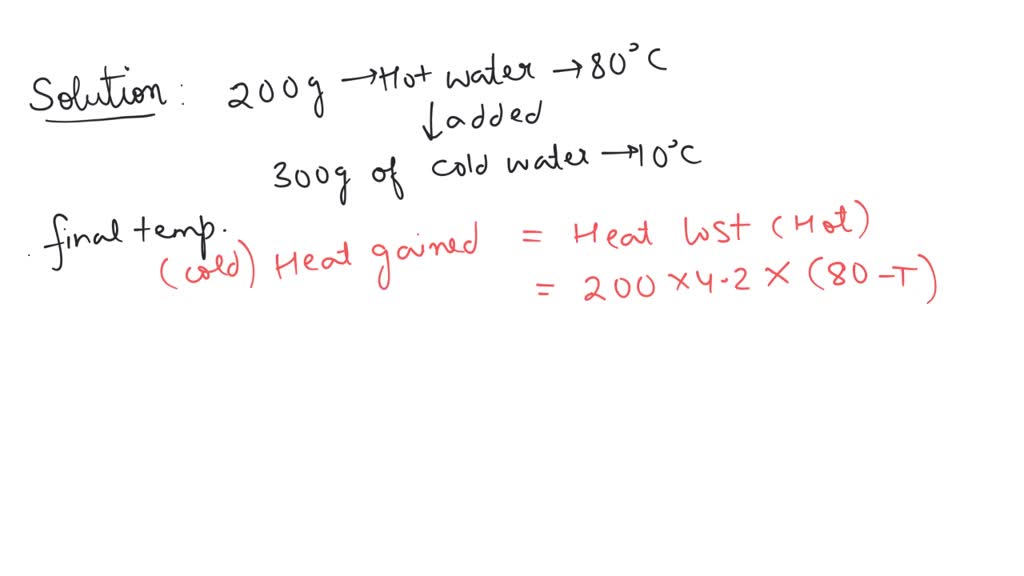 Solution: 200g → Hot water → 80°C
↓ added
300g of cold water → 10°C
final temp.
(cold) Heat gained = Heat lost (Hot)
= 200 × 4.2 × (80 - T)